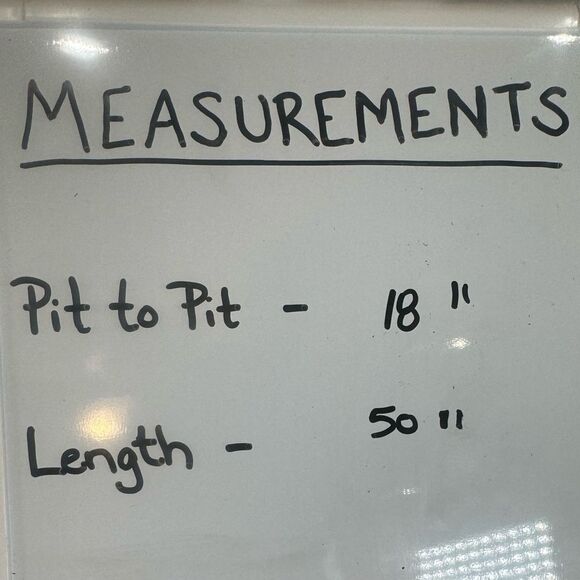 MEASUREMENTS
Pit to Pit - 18 "
Length - 50 "